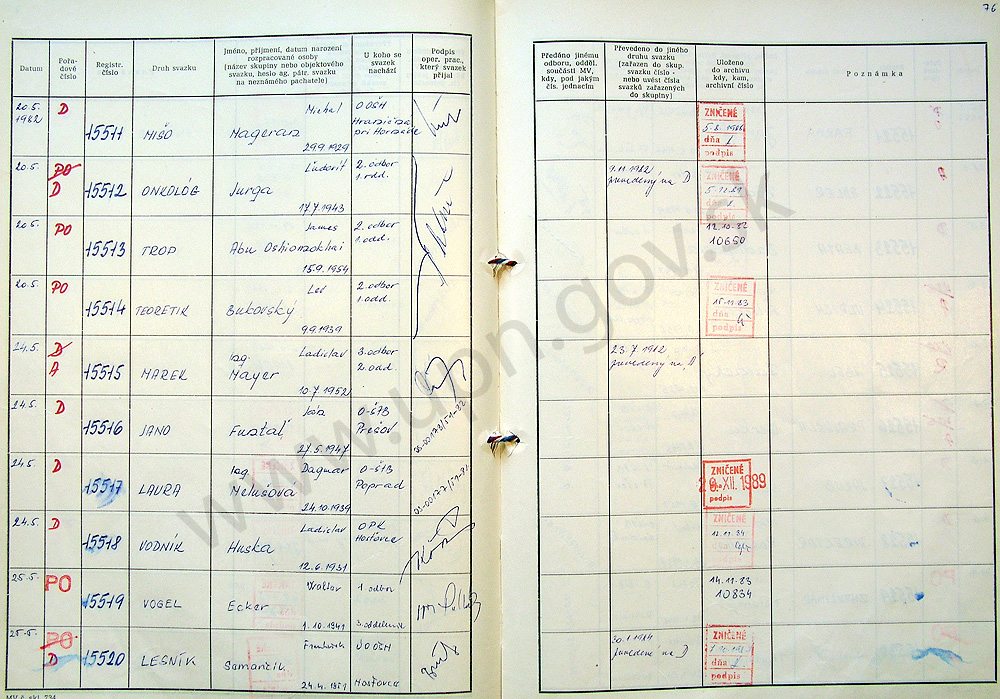 76
Datum
Pořa-
dové
číslo
Registr.
číslo
Druh svazku
Jméno, příjmení, datum narození
rozpracované osoby
(název skupiny nebo objektového
svazku, heslo ag. pátr. svazku
na neznámého pachatele)
U koho se
svazek
nachází
Podpis
oper. prac.,
který svazek
přijal
Předáno jinému
odboru, odděl.
součásti MV,
kdy, pod jakým
čís. jednacím
Převedeno do jiného
druhu svazku
(zařazen do skup.
svazku číslo -
nebo uvést čísla
svazků zařazených
do skupiny)
Uloženo
do archivu
kdy, kam,
archivní číslo
Poznámka
20.5.
1982
D
15511
MIŠO
Michal
Mageran
29.9.1929
OOŠH
ZNIČENÉ
dňa
podpis
20.5.
PO
D
15512
ONKOLÓG
Ľudovít
Jurga
17.7.1943
2. odbor
1. odd.
9.11.1982
prevedený na D
ZNIČENÉ
podpis
20.5.
PO
15513
TROP
James
Abu Oshionzokhai
15.9.1954
2. odbor
1. odd.
12.10.82
10650
20.5.
PO
15514
TEORETIK
Lev
Bukovský
9.9.1939
2. odbor
1. odd.
ZNIČENÉ
15.11.83
dňa
podpis
24.5.
D
A
15515
MAREK
Ing. Ladislav
Mayer
10.7.1952
3. odbor
2. odd.
23.7.1982
prevedený na A
24.5.
D
15516
JANO
Ján
27.5.1947
O-ŠTB
Prešov
24.5.
D
15517
LAURA
Ing. Dagmar
Melušová
24.10.1939
O-ŠTB
Poprad
ZNIČENÉ
XII. 1989
podpis
24.5.
D
15518
VODNÍK
Ladislav
Huska
12.6.1931
OPK
ZNIČENÉ
podpis
25.5.
PO
15519
VOGEL
Ecker
1.10.1941
1. odbor
3. oddelenie
14.11.83
10834
25.5.
PO
D
15520
LESNÍK
František
Samančík
ÚOOŠH
prevedené na D
ZNIČENÉ
podpis
www.upn.gov.sk